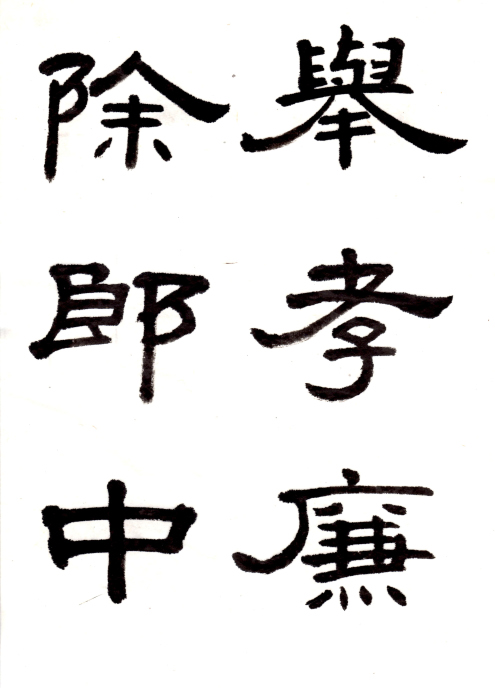 舉孝廉
除郎中